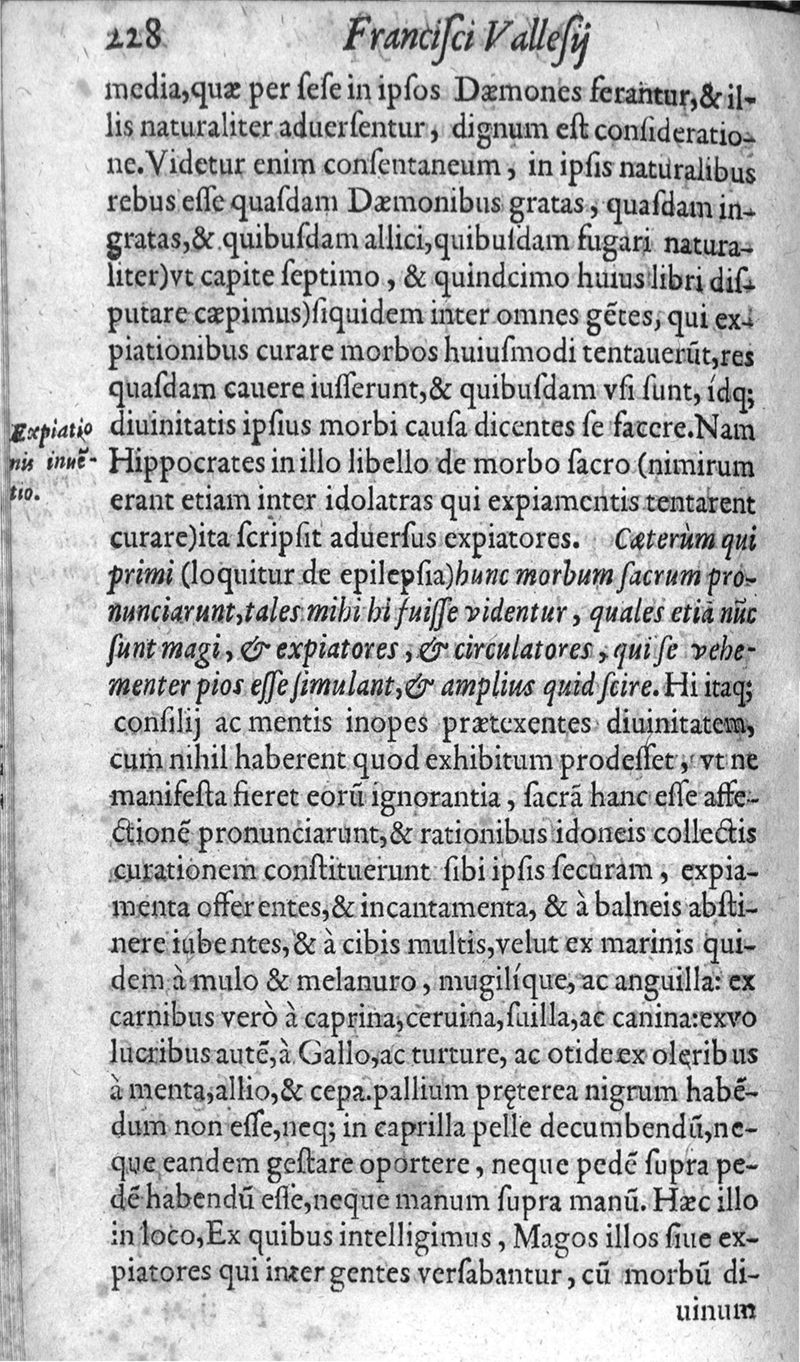 228 Franciſci Valleſij
media,quæ per ſeſe in ipſos Dæmones ferantur,& il-
lis naturaliter aduerſentur, dignum eſt conſideratio-
ne.Videtur enim conſentaneum, in ipſis naturalibus
rebus eſſe quaſdam Dæmonibus gratas, quaſdam in-
gratas,& quibuſdam allici,quibuſdam fugari natura-
liter)vt capite ſeptimo, & quindcimo huius libri diſ-
putare cæpimus)ſiquidem inter omnes gẽtes, qui ex-
piationibus curare morbos huiuſmodi tentauerũt,res
quaſdam cauere iuſſerunt,& quibuſdam vſi ſunt, ídq;
Expiatio
nis inuẽ-
tio.
diuinitatis ipſius morbi cauſa dicentes ſe facere.Nam
Hippocrates in illo libello de morbo ſacro (nimirum
erant etiam inter idolatras qui expiamentis tentarent
curare)ita ſcripſit aduerſus expiatores. Cæterùm qui
primi (loquitur de epilepſia)hunc morbum ſacrum pro-
nunciarunt,tales mihi hi fuiſſe videntur, quales etiã nũc
ſunt magi, & expiatores, & circulatores, qui ſe vehe-
menter pios eſſe ſimulant,& amplius quid ſcire. Hi itaq;
conſilij ac mentis inopes prætexentes diuinitatem,
cum nihil haberent quod exhibitum prodeſſet, vt ne
manifeſta fieret eorũ ignorantia, ſacrã hanc eſſe affe-
ctionẽ pronunciarunt,& rationibus idoneis collectis
curationem conſtituerunt ſibi ipſis ſecuram, expia-
menta offerentes,& incantamenta, & à balneis abſti-
nere iubentes,& à cibis multis,velut ex marinis qui-
dem à mulo & melanuro, mugilíque, ac anguilla: ex
carnibus verò à caprina,ceruina,ſuilla,ac canina:exvo
lucribus autẽ,à Gallo,ac turture, ac otide:ex oleribus
à menta,allio,& cepa.pallium pręterea nigrum habẽ-
dum non eſſe,neq; in caprilla pelle decumbendũ,ne-
que eandem geſtare oportere, neque pedẽ ſupra pe-
dẽ habendũ eſſe,neque manum ſupra manũ. Hæc illo
in loco,Ex quibus intelligimus, Magos illos ſiue ex-
piatores qui inter gentes verſabantur, cũ morbũ di-
uinum